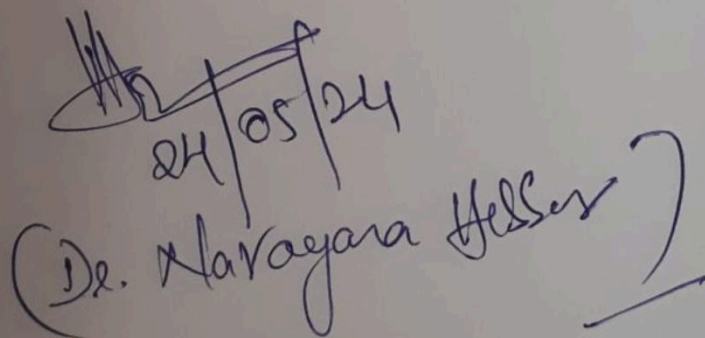 24/05/24
(Dr. Narayana Hebbar)